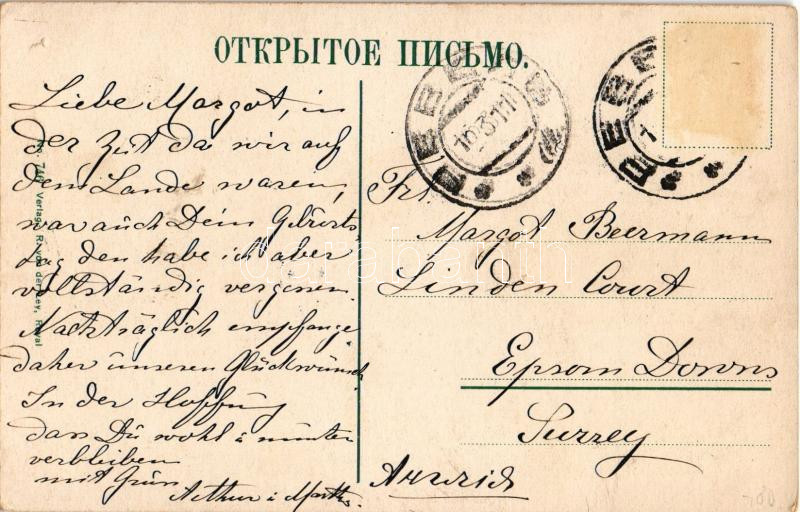 ОТКРЫТОЕ ПИСЬМО.
Liebe Margot, in
der Zeit da wir auf
dem Lande waren,
war auch Dein Geburts-
tag den habe ich aber
vollständig vergessen.
Nachträglich empfange
daher unseren Glückwunsch
In der Hoffnung
dass Du wohl u munter
verbleiben
mit Gruss
Arthur u Martha.
Frl.
Margot Beermann
Linden Court
Epsom Downs
Surrey
Англия
16311
Verlag R. von der Ley, Reval
darabanth